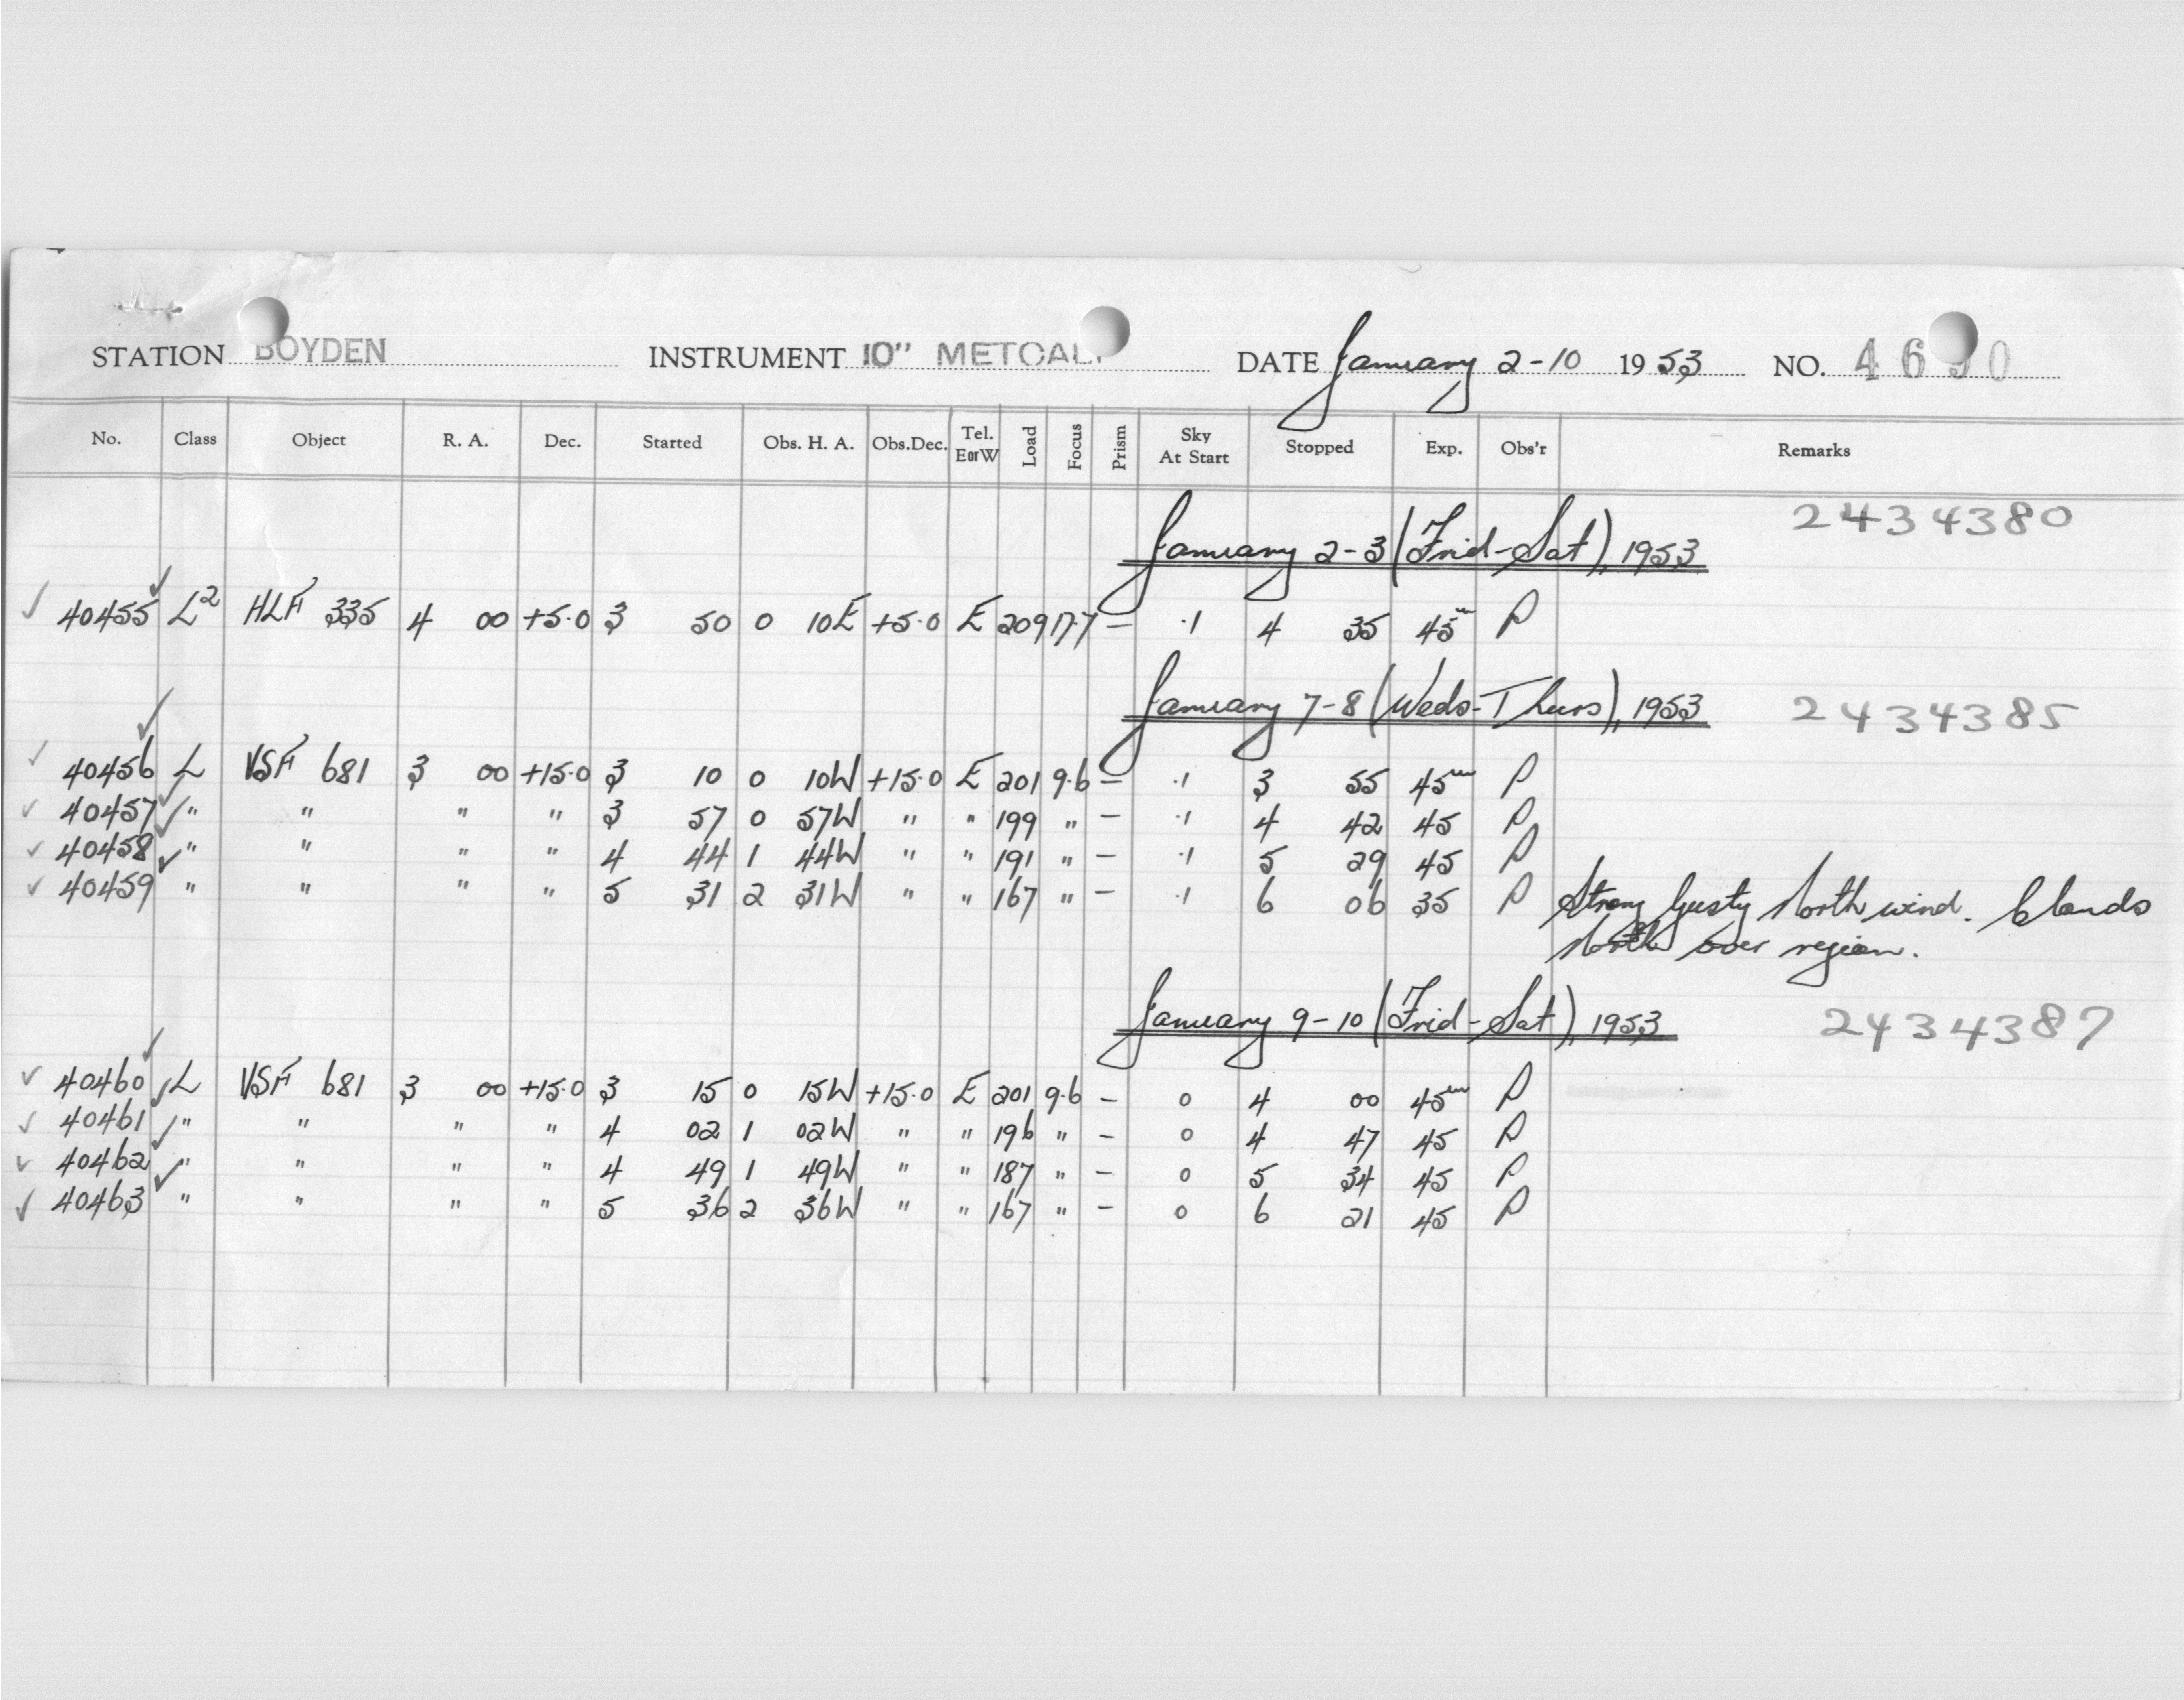 STATION BOYDEN INSTRUMENT 10" METCALF DATE January 2-10 1953 NO. 4690
No. Class Object R. A. Dec. Started Obs. H. A. Obs.Dec. Tel. E or W Load Focus Prism Sky At Start Stopped Exp. Obs'r Remarks
January 2-3 (Frid-Sat), 1953 2434380
40455 L² HLF 335 4 00 +5.0 3 50 0 10E +5.0 E 209 17.7 — .1 4 35 45ᵐ P
January 7-8 (Weds-Thurs), 1953 2434385
40456 L VSF 681 3 00 +15.0 3 10 0 10W +15.0 E 201 9.6 — .1 3 55 45ᵐ P
40457 " " " " 3 57 0 57W " " 199 " — .1 4 42 45 P
40458 " " " " 4 44 1 44W " " 191 " — .1 5 29 45 P
40459 " " " " 5 31 2 31W " " 167 " — .1 6 06 35 P Strong gusty North wind. Clouds
North over region.
January 9-10 (Frid-Sat), 1953 2434387
40460 L VSF 681 3 00 +15.0 3 15 0 15W +15.0 E 201 9.6 — 0 4 00 45ᵐ P
40461 " " " " 4 02 1 02W " " 196 " — 0 4 47 45 P
40462 " " " " 4 49 1 49W " " 187 " — 0 5 34 45 P
40463 " " " " 5 36 2 36W " " 167 " — 0 6 21 45 P